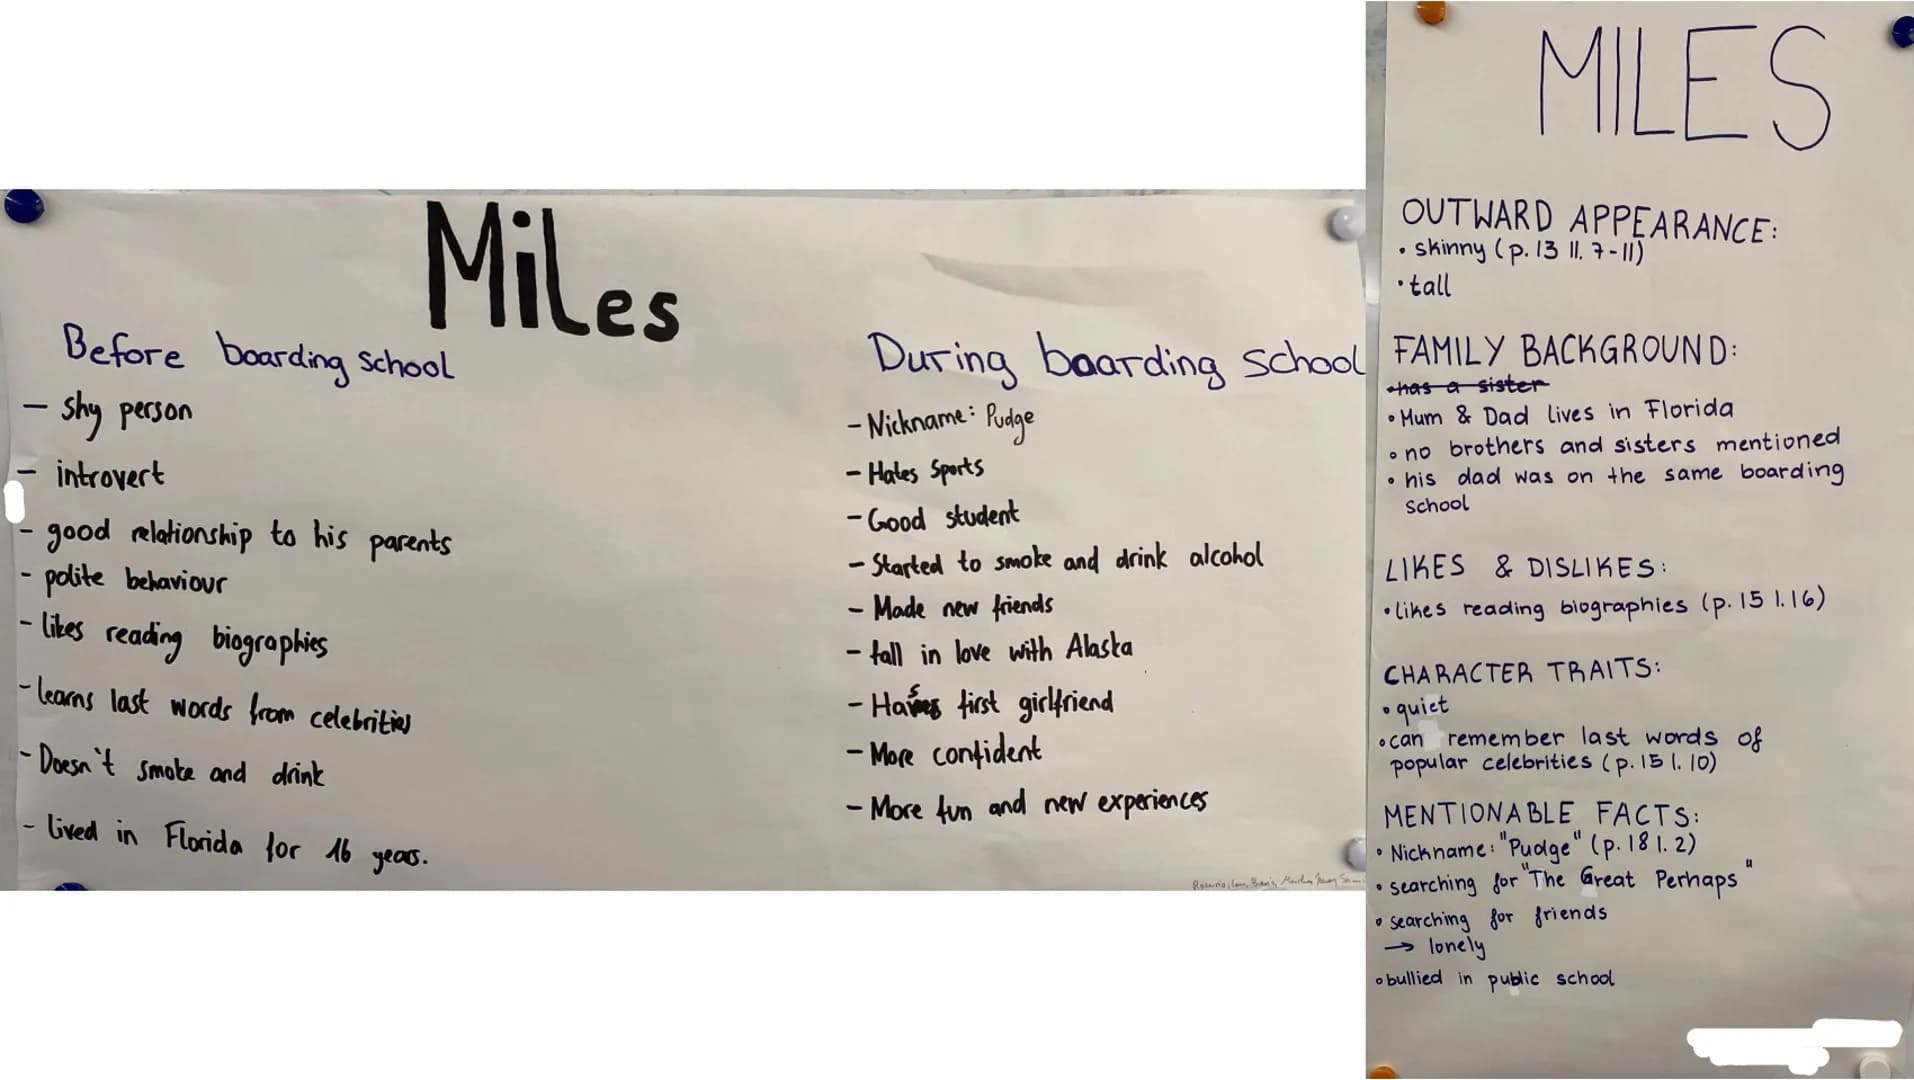 Miles
Before boarding school
- shy person
- introvert
- good relationship to his parents
- polite behaviour
- likes reading biographies
- learns last words from celebrities
- Doesn't smoke and drink
- lived in Florida for 16 years.
During boarding school
- Nickname: Pudge
- Hates Sports
- Good student
- Started to smoke and drink alcohol
- Made new friends
- fall in love with Alaska
- Has first girlfriend
- More confident
- More fun and new experiences
MILES
OUTWARD APPEARANCE:
• skinny (p. 13 ll. 7-11)
• tall
FAMILY BACKGROUND:
• has a sister
• Mum & Dad lives in Florida
• no brothers and sisters mentioned
• his dad was on the same boarding
school
LIKES & DISLIKES:
• likes reading biographies (p. 15 l. 16)
CHARACTER TRAITS:
• quiet
• can remember last words of
popular celebrities (p. 15 l. 10)
MENTIONABLE FACTS:
• Nickname: "Pudge" (p. 18 l. 2)
• searching for "The Great Perhaps"
• searching for friends
→ lonely
• bullied in public school